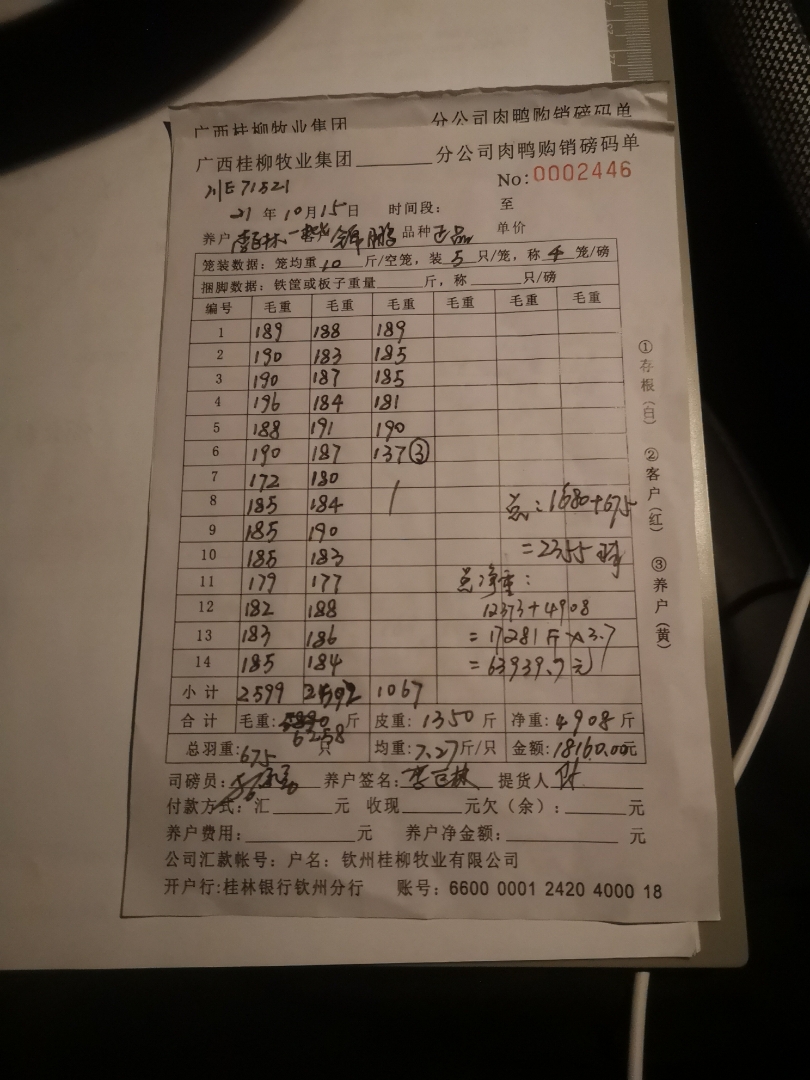 广西桂柳牧业集团 分公司肉鸭购销磅码单
广西桂柳牧业集团______分公司肉鸭购销磅码单
川E71521
No: 0002446
21年10月15日 时间段： 至
养户 客户 鹏 品种 正品 单价
笼装数据：笼均重 10 斤/空笼，装 5 只/笼，称 4 笼/磅
捆脚数据：铁筐或板子重量______斤，称______只/磅
编号 毛重 毛重 毛重 毛重 毛重 毛重
1 189 188 189
2 190 183 185
3 190 187 185
4 196 184 181
5 188 191 190
6 190 187 137③
7 172 180
8 185 184
9 185 190
10 185 183
11 179 177
12 182 188
13 183 186
14 185 184
总：1680+675
=2355
总净重：
12373+4908
=17281斤×3.7
=63939.7元
小计 2599 2592 1067
合计 毛重: 6258 斤 皮重: 1350 斤 净重: 4908 斤
总羽重: 675 只 均重: 7.27 斤/只 金额: 18160.00元
司磅员: 养户签名: 提货人
付款方式：汇______元 收现______元欠（余）：______元
养户费用:______元 养户净金额:______元
公司汇款帐号：户名：钦州桂柳牧业有限公司
开户行:桂林银行钦州分行 账号：6600 0001 2420 4000 18
①存根（白） ②客户（红） ③养户（黄）